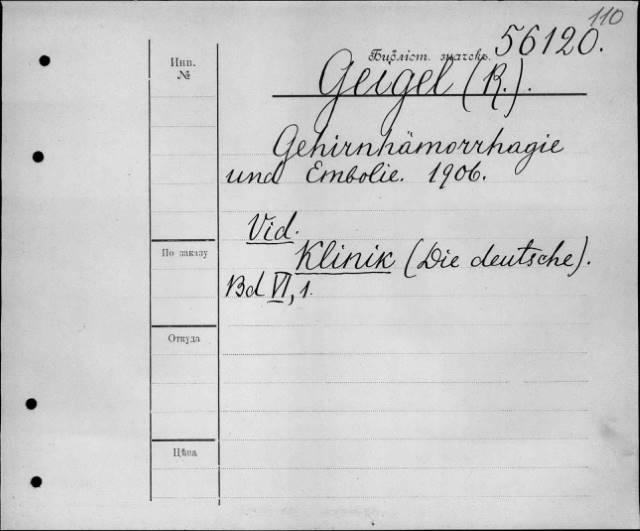 110
Бібліот. значекъ. 56120.
Инв.
№
Geigel (R.).
Gehirnhämorrhagie
und Embolie. 1906.
Vid.
Klinik (Die deutsche).
По заказу
Bd VI, 1.
Откуда
Цѣна